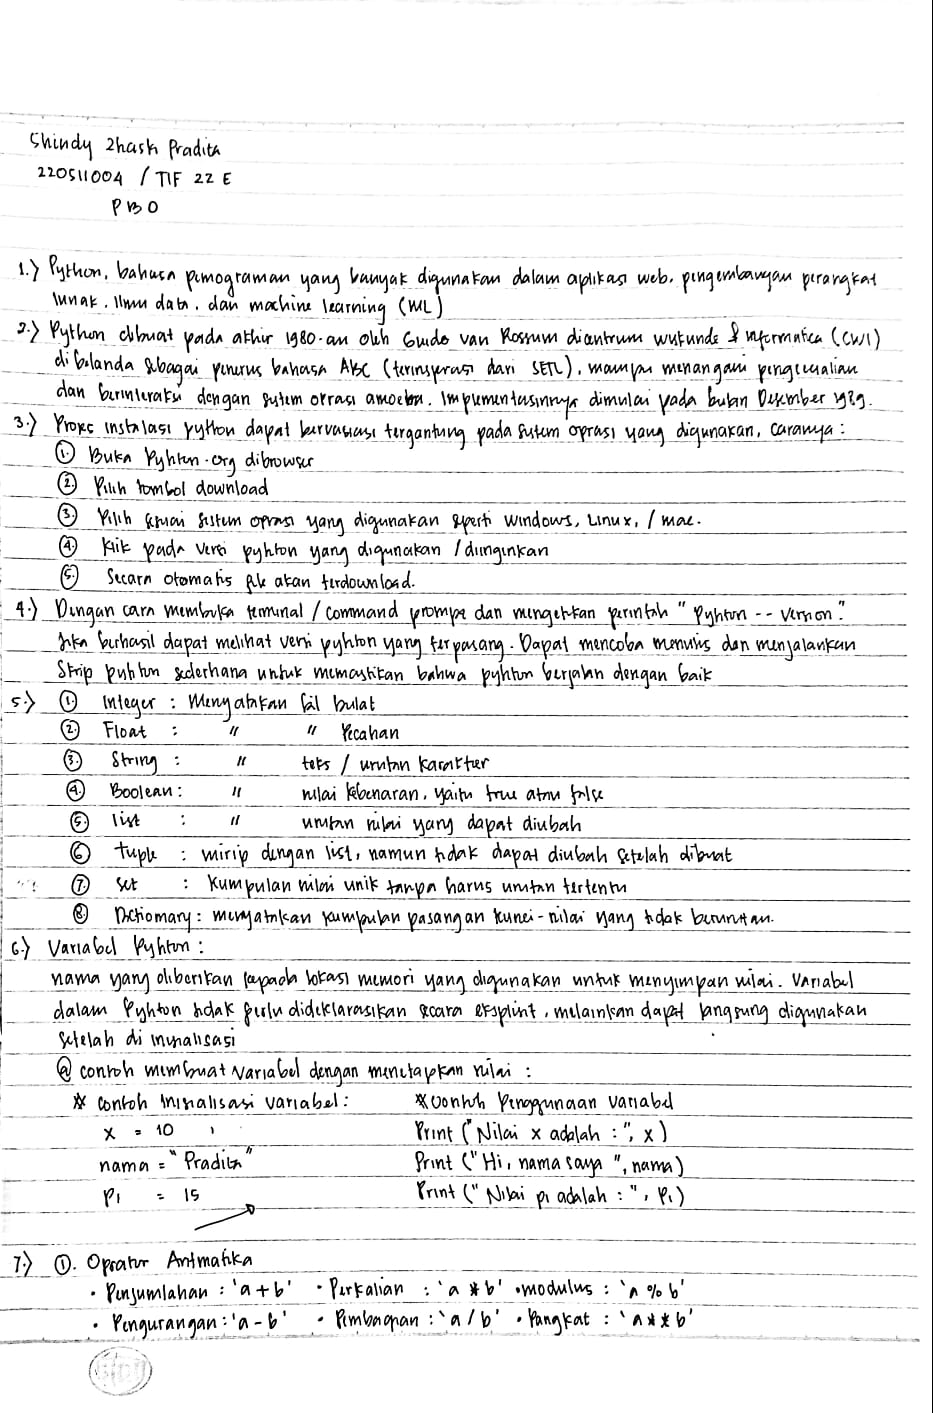 Shindy Zhash Pradita
220511004 / TIF 22 E
PBO
1.) Python, bahasa pemograman yang banyak digunakan dalam aplikasi web, pengembangan perangkat
lunak, ilmu data, dan machine learning (ML)
2.) Python dibuat pada akhir 1980-an oleh Guido van Rossum dicentrum wiskunde & informatica (CWI)
di belanda sebagai penerus bahasa ABC (terinspirasi dari SETL), mampu menangani pengecualian
dan berinteraksi dengan sistem oprasi amoeba. Impementasinnya dimulai pada bulan Desember 1989.
3.) Proses instalasi python dapat bervasiasi tergantung pada sistem oprasi yang digunakan, caranya :
① Buka Pyhton.org dibrowser
② Pilih tombol download
③ Pilih sesuai sistem oprasi yang digunakan seperti windows, Linux, / mac.
④ Klik pada versi pyhton yang digunakan / diinginkan
⑤ Secara otomatis file akan terdownload.
4.) Dengan cara membuka terminal / command prompt dan mengetikkan perintah " Pyhton -- version".
Jika berhasil dapat melihat versi pyhton yang terpasang. Dapat mencoba menulis dan menjalankan
Skrip pyhton sederhana untuk memastikan bahwa pyhton berjalan dengan baik
5.) ① Integer : Menyatakan bil bulat
② Float : " " Pecahan
③ String : " teks / urutan karakter
④ Boolean : " nilai kebenaran, yaitu true atau false
⑤ list : " urutan nilai yang dapat diubah
⑥ tuple : mirip dengan list, namun tidak dapat diubah setelah dibuat
⑦ set : Kumpulan nilai unik tanpa harus urutan tertentu
⑧ Dictionary : menyatakan kumpulan pasangan kunci - nilai yang tidak berurutan.
6.) Variabel Pyhton :
nama yang diberikan kepada lokasi memori yang digunakan untuk menyimpan nilai. Variabel
dalam Pyhton tidak perlu dideklarasikan secara eksplisit, melainkan dapat langsung digunakan
setelah di inisialisasi
@ contoh membuat variabel dengan menetapkan nilai :
* contoh inisialisasi variabel : * Contoh Penggunaan variabel
x = 10 Print ("Nilai x adalah :", x)
nama = "Pradita" Print ("Hi, nama saya ", nama)
Pi = 15 Print (" Nilai pi adalah : ", Pi)
7.) ①. Oprator Aritmatika
• Penjumlahan : 'a + b' • Perkalian : 'a * b' • modulus : 'a % b'
• Pengurangan : 'a - b' • Pembagian : 'a / b' • Pangkat : 'a ** b'